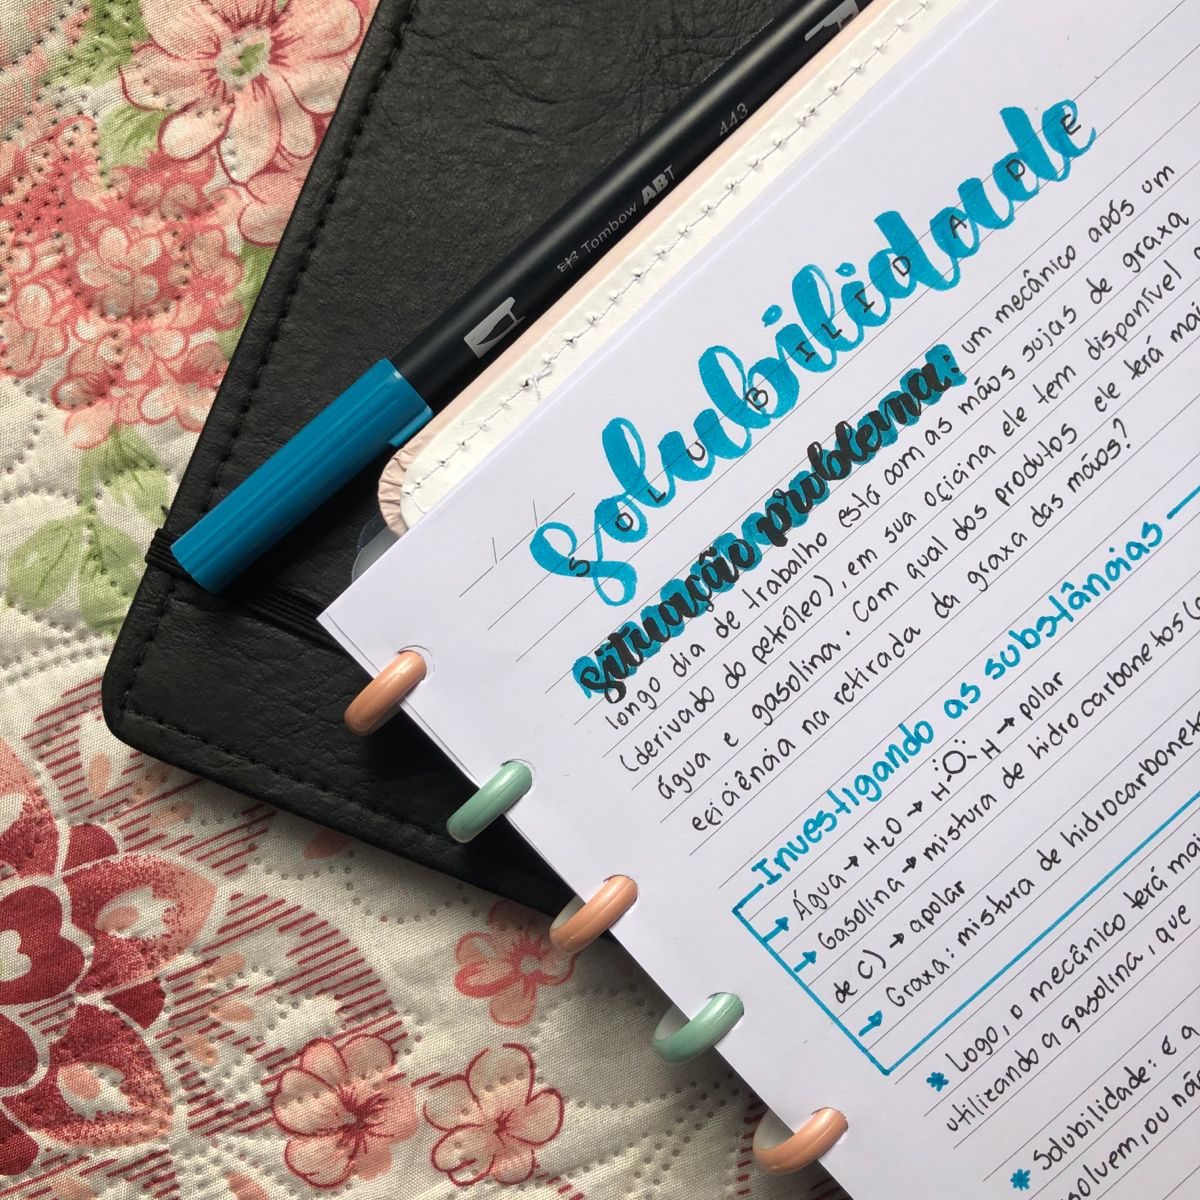 Tombow ABT 443
Solubilidade
SOLUBILIDADE
situação problema: um mecânico após um
longo dia de trabalho está com as mãos sujas de graxa
(derivado do petróleo), em sua oficina ele tem disponível
água e gasolina. Com qual dos produtos ele terá mais
eficiência na retirada da graxa das mãos?
Investigando as substâncias
→ Água → H2O → H-O-H → polar
→ Gasolina → mistura de hidrocarbonetos (
de C) → apolar
→ Graxa: mistura de hidrocarbonet
* Logo, o mecânico terá mai
utilizando a gasolina, que
* Solubilidade: é a
solvem, ou nã